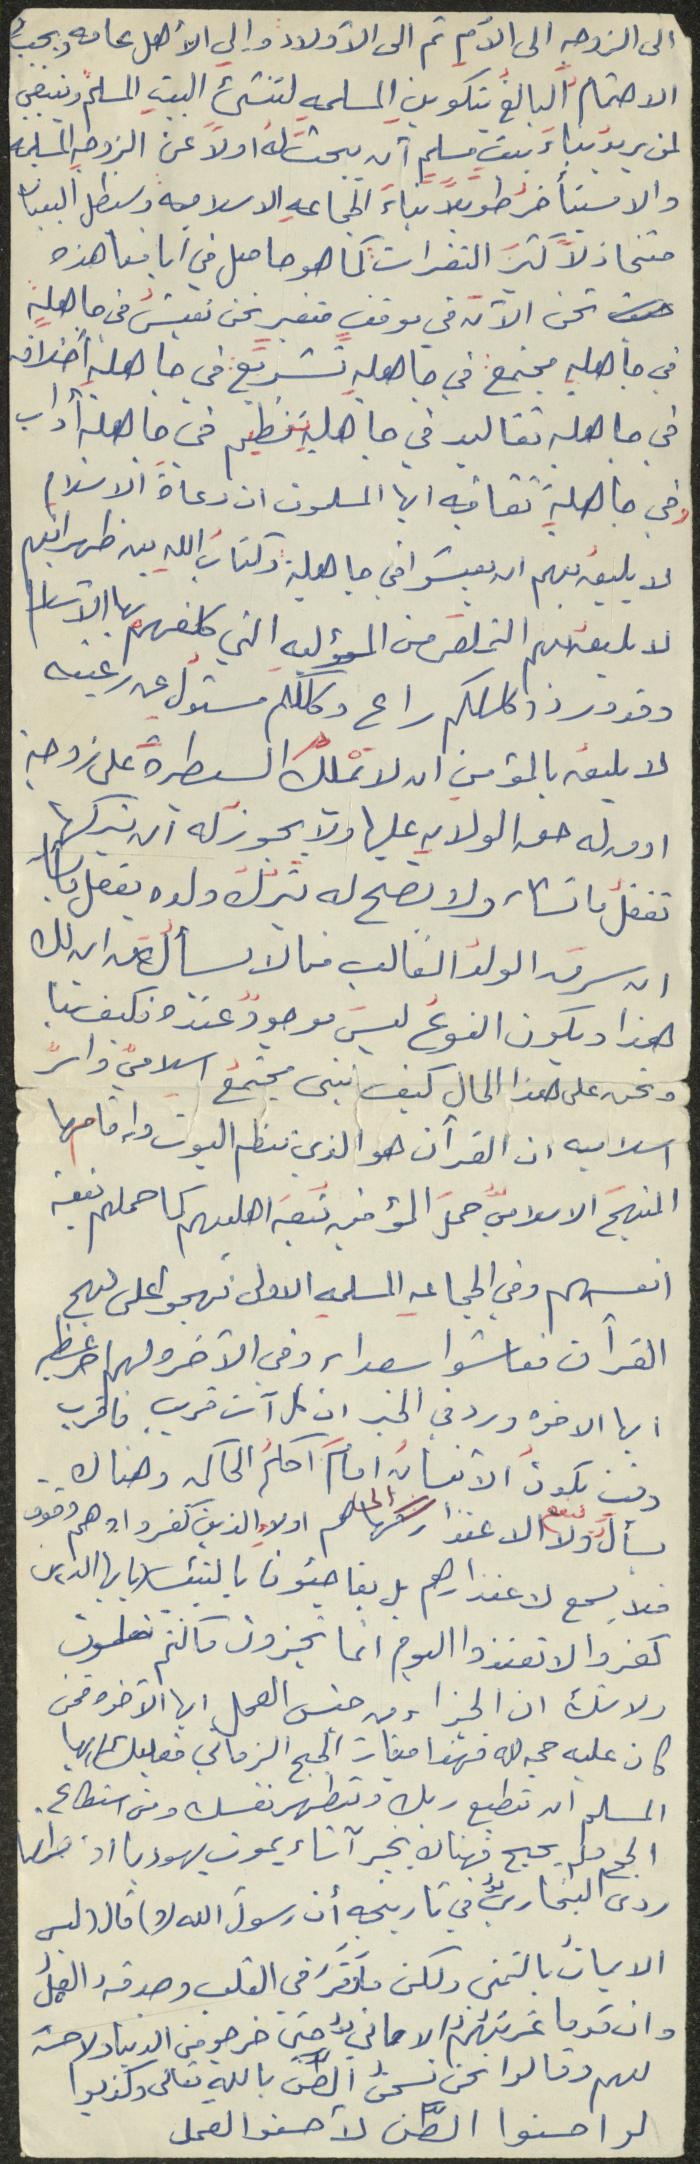 الى الزوجه الى الأم ثم الى الأولاد والى الأهل عامه ويجب
الاهتمام البالغ بتكوين المسلمه لتنشئ البيت المسلم وينبغي
لمن يريد بناء بيت مسلم أن يبحث له اولاً عن الزوجه المسلمه
والا فسيتأخر طويلاً بناء الجماعه الاسلاميه وسيظل البنيان
متخاذلاً كثير الثغرات كما هو حاصل في أيامنا هذه
نحن الآن في موقف متغير نحن نعيش في جاهلية
في جاهلية مجتمع في جاهلية تشريع في جاهلية أخلاق
في جاهلية تقاليد في جاهلية تنظيم في جاهلية أداب
وفي جاهلية ثقافيه ايها المسلمون ان دعاة الاسلام
لا يليق بهم ان يعيشوا في جاهلية وكتاب الله بين ظهرانيهم
لا يليق بهم التملص من المسؤليه التي كلفهم بها الاسلام
وقد ورد كلكم راع وكلكم مسئول عن رعيته
لا يليق بالمؤمن ان لا تملك السيطرة على زوجة
او من له حق الولايه عليها ولا يجوز له أن يتركها
تفعل ما تشاء ولا يصح له يترك ولده يفعل ما يشاء
ان سرق الولد الغالب منا لا يسأل من اين لك
هذا ويكون النوع ليس موجود عنده فكيف بنا
ونحن على هذا الحال كيف نبني مجتمع اسلامي وأسر
اسلاميه ان القرآن هو الذي ينظم البيوت واقامها
المنهج الاسلامي حمل المؤمنين تبعة اهليهم كما حملهم تبعة
انفسهم وفي الجماعه المسلمه الاولى نهجوا على نهج
القرآن فعاشوا سعداء وفي الآخره لهم اجر عظيم
ايها الاخوه ورد في الخبر ان كل آت قريب فاقرب
وقت يكون الانسان امام أحكم الحاكمين وهناك
يسأل ولا تنفع الاعتذار اولاء الذين كفروا وهم وقود
فلا يسمع لاعتذارهم بل يفاجئون بالتيئيس (يا ايها الذين
كفروا لا تعتذروا اليوم انما تجزون ما كنتم تعملون
ولا شك ان الجزاء من جنس العمل ايها الاخوه فمن
كان عليه حجه لله فهذا ميقات الحج الزماني فعليك ايها
المسلم ان تطيع ربك وتطهر نفسك ومن استطاع
الحج ولم يحج فهناك يخير آناء يموت يهوديا او نصرانيا
روى البخاري في تاريخه أن رسول الله (ص) قال (ليس
الايمان بالتمني ولكن ما وقر في القلب وصدقه العمل
وان قوما غرتهم الاماني حتى خرجو من الدنيا ولا حسنة
لهم وقالوا نحن نحسن الظن بالله تعالى وكذبوا
لو احسنوا الظن لأحسنوا العمل